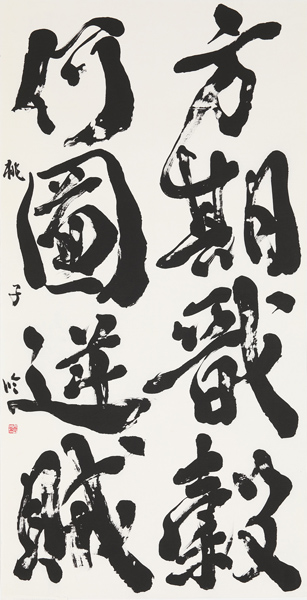 方期戢穀
何圖逆賊
桃子㕫